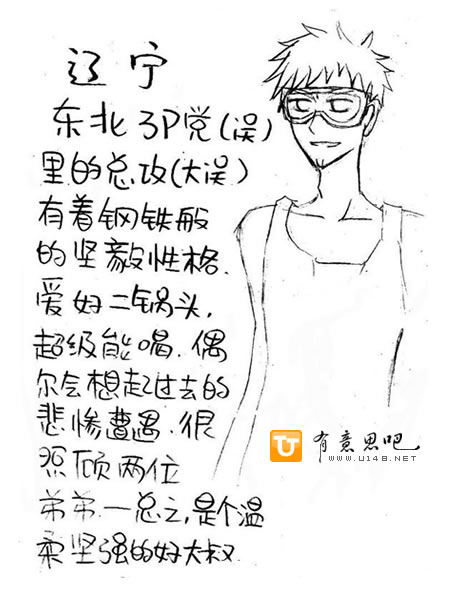 辽宁
东北3P党(误)
里的总攻(大误)
有着钢铁般
的坚毅性格.
爱好二锅头,
超级能喝.偶
尔会想起过去的
悲惨遭遇.很
照顾两位
弟弟.一总之,是个温
柔坚强的好大叔
有意思吧
WWW.U148.NET